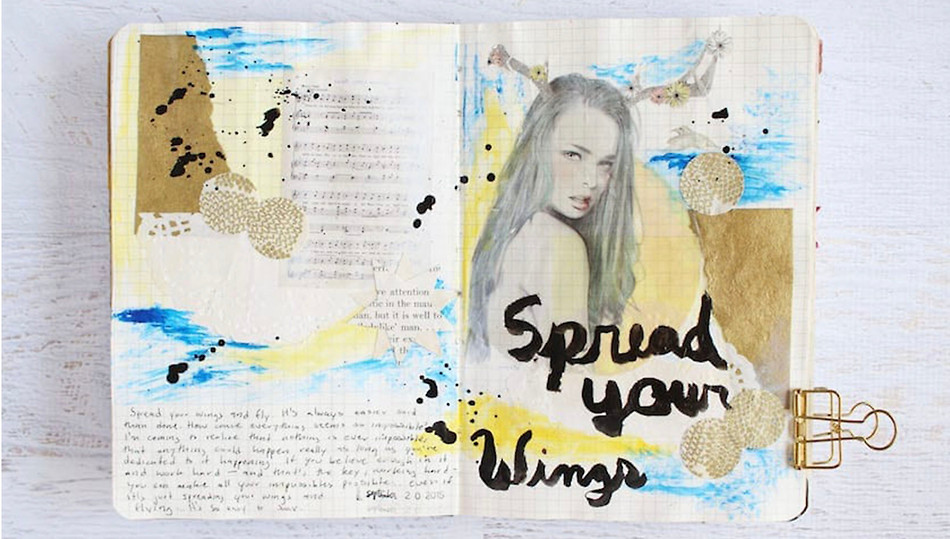 ve attention
tic in the
but it is well to
man.
Spread your wings and fly. It's always easier said
than done. How come everything seems so impossible.
I'm coming to realize that nothing is ever impossible,
that anything could happen really as long as you're
dedicated to it happening. if you believe enough in it
and work hard - and that's the key, working hard -
you can make all your impossibles possibles.. even if
it's just spreading your wings and
flying. It's so easy to soar.
September 20 2015
Spread
your
Wings